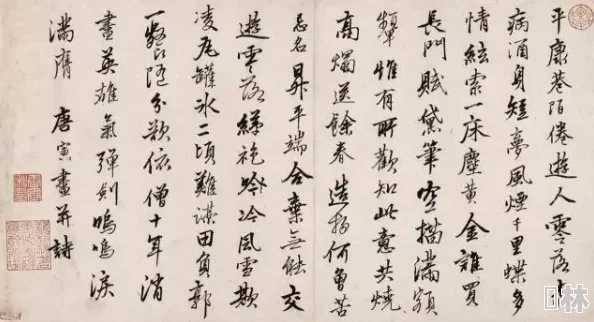 平康巷陌倦遊人零落
病酒身短夢風煙千里蝶多
情絃索一床塵黄金誰買
長門賦黛筆空描滿額
顰惟有所歡知此意共燒
高燭送餘春造物何曾苦
忌名昇平端合棄無能交
遊零落綈袍冷風雪欺
凌瓦罐冰二頃難謀田負郭
一餐隨分欲依僧十年消
盡英雄氣彈劍嗚嗚淚
滿膺 唐寅畫并詩
林